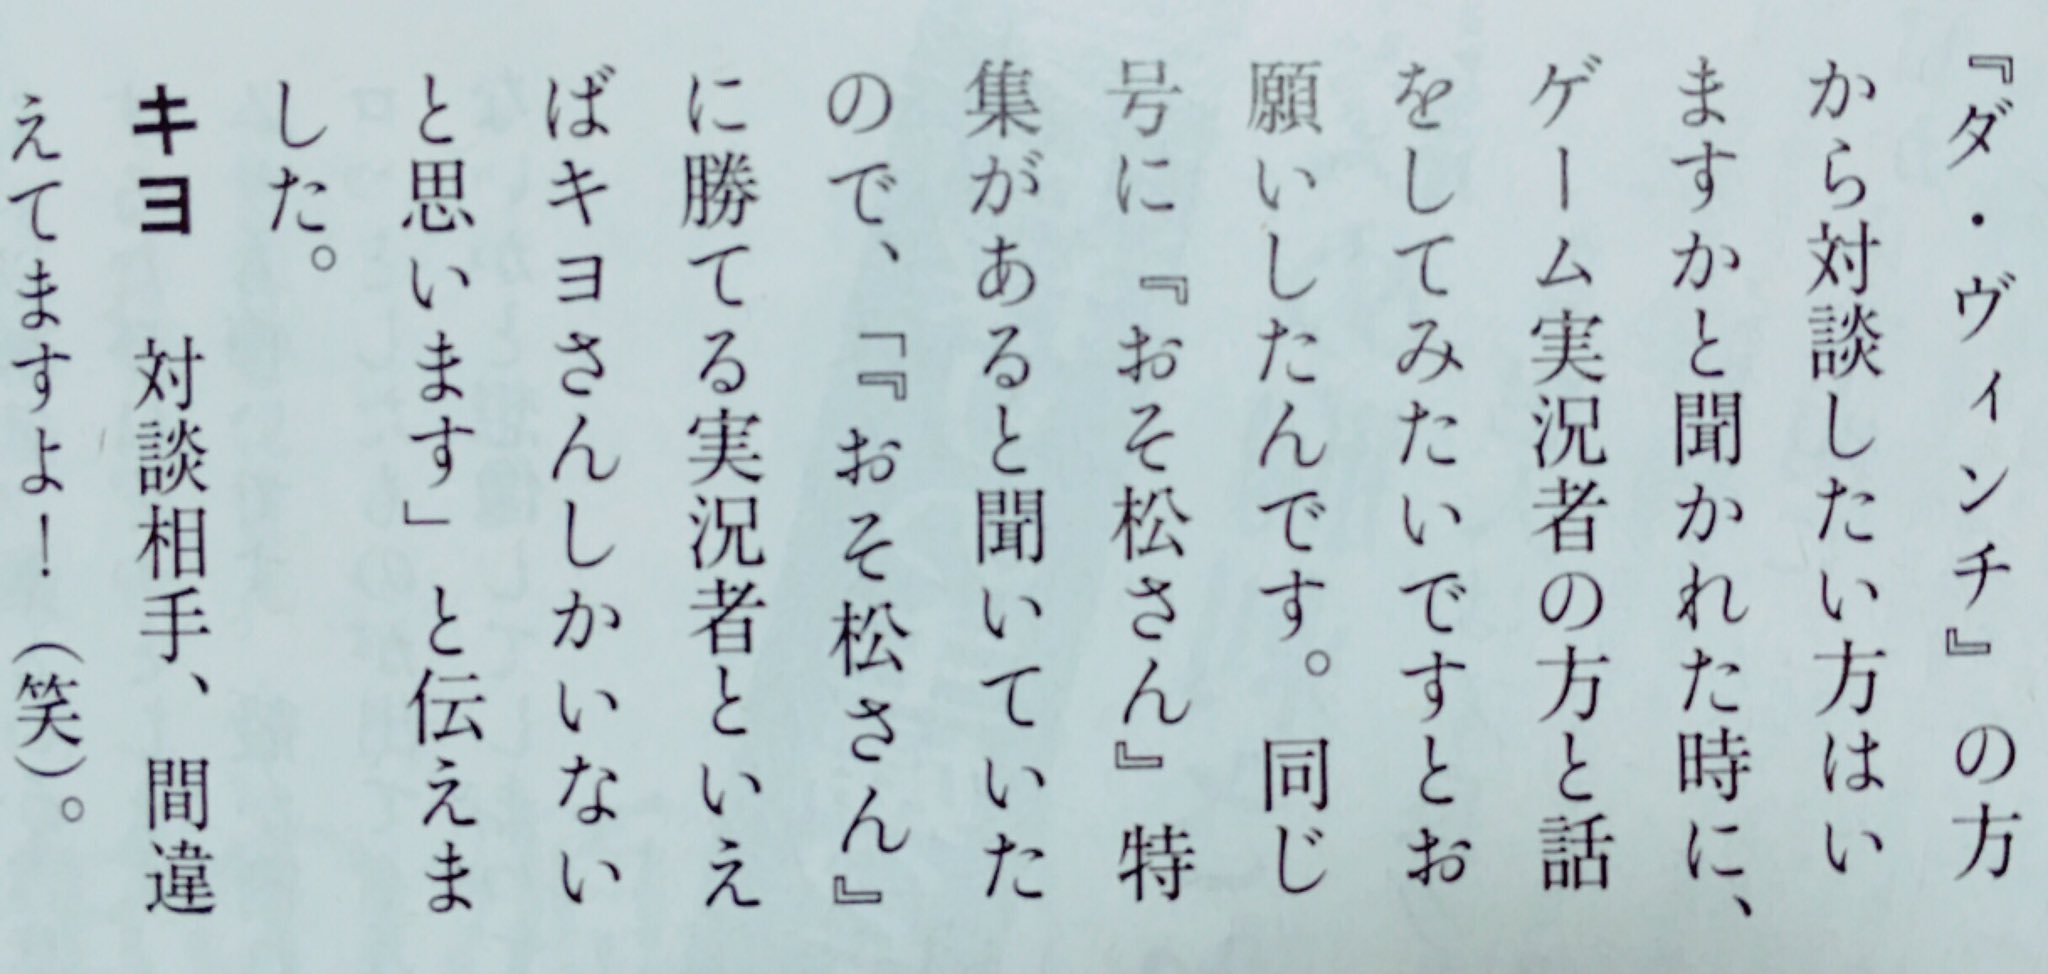 『ダ・ヴィンチ』の方
から対談したい方はい
ますかと聞かれた時に、
ゲーム実況者の方と話
をしてみたいですとお
願いしたんです。同じ
号に『おそ松さん』特
集があると聞いていた
ので、「『おそ松さん』
に勝てる実況者といえ
ばキヨさんしかいない
と思います」と伝えま
した。
キヨ　対談相手、間違
えてますよ！（笑）。